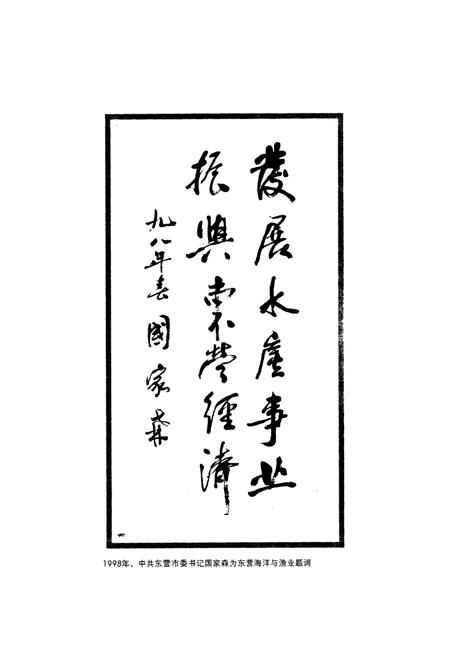 發展水產事业
振興东营經濟
九八年春 國家森
1998年，中共东营市委书记国家森为东营海洋与渔业题词